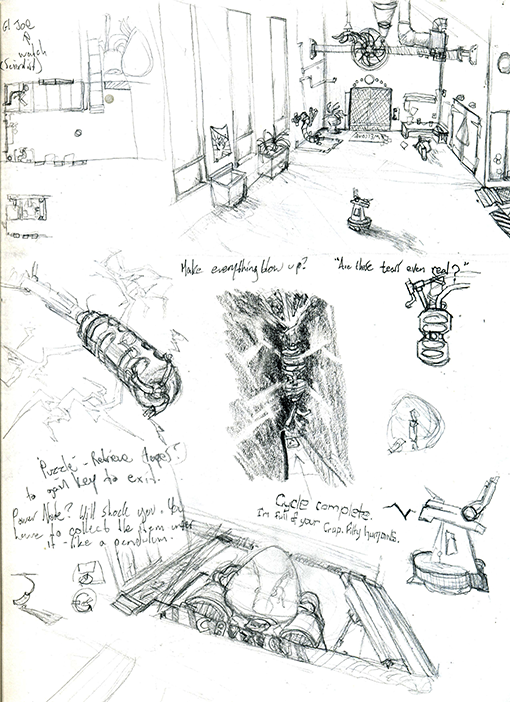 GI JOE
watch
(Scientist)
Make everything blow up?
"Are these tests even real?"
"Puzzle" - Retrieve
to gain key to exit.
Power Node? Will shock you. You
have to collect the items under
it - like a pendulum.
Cycle complete.
I'm full of your Crap. Filthy humans.